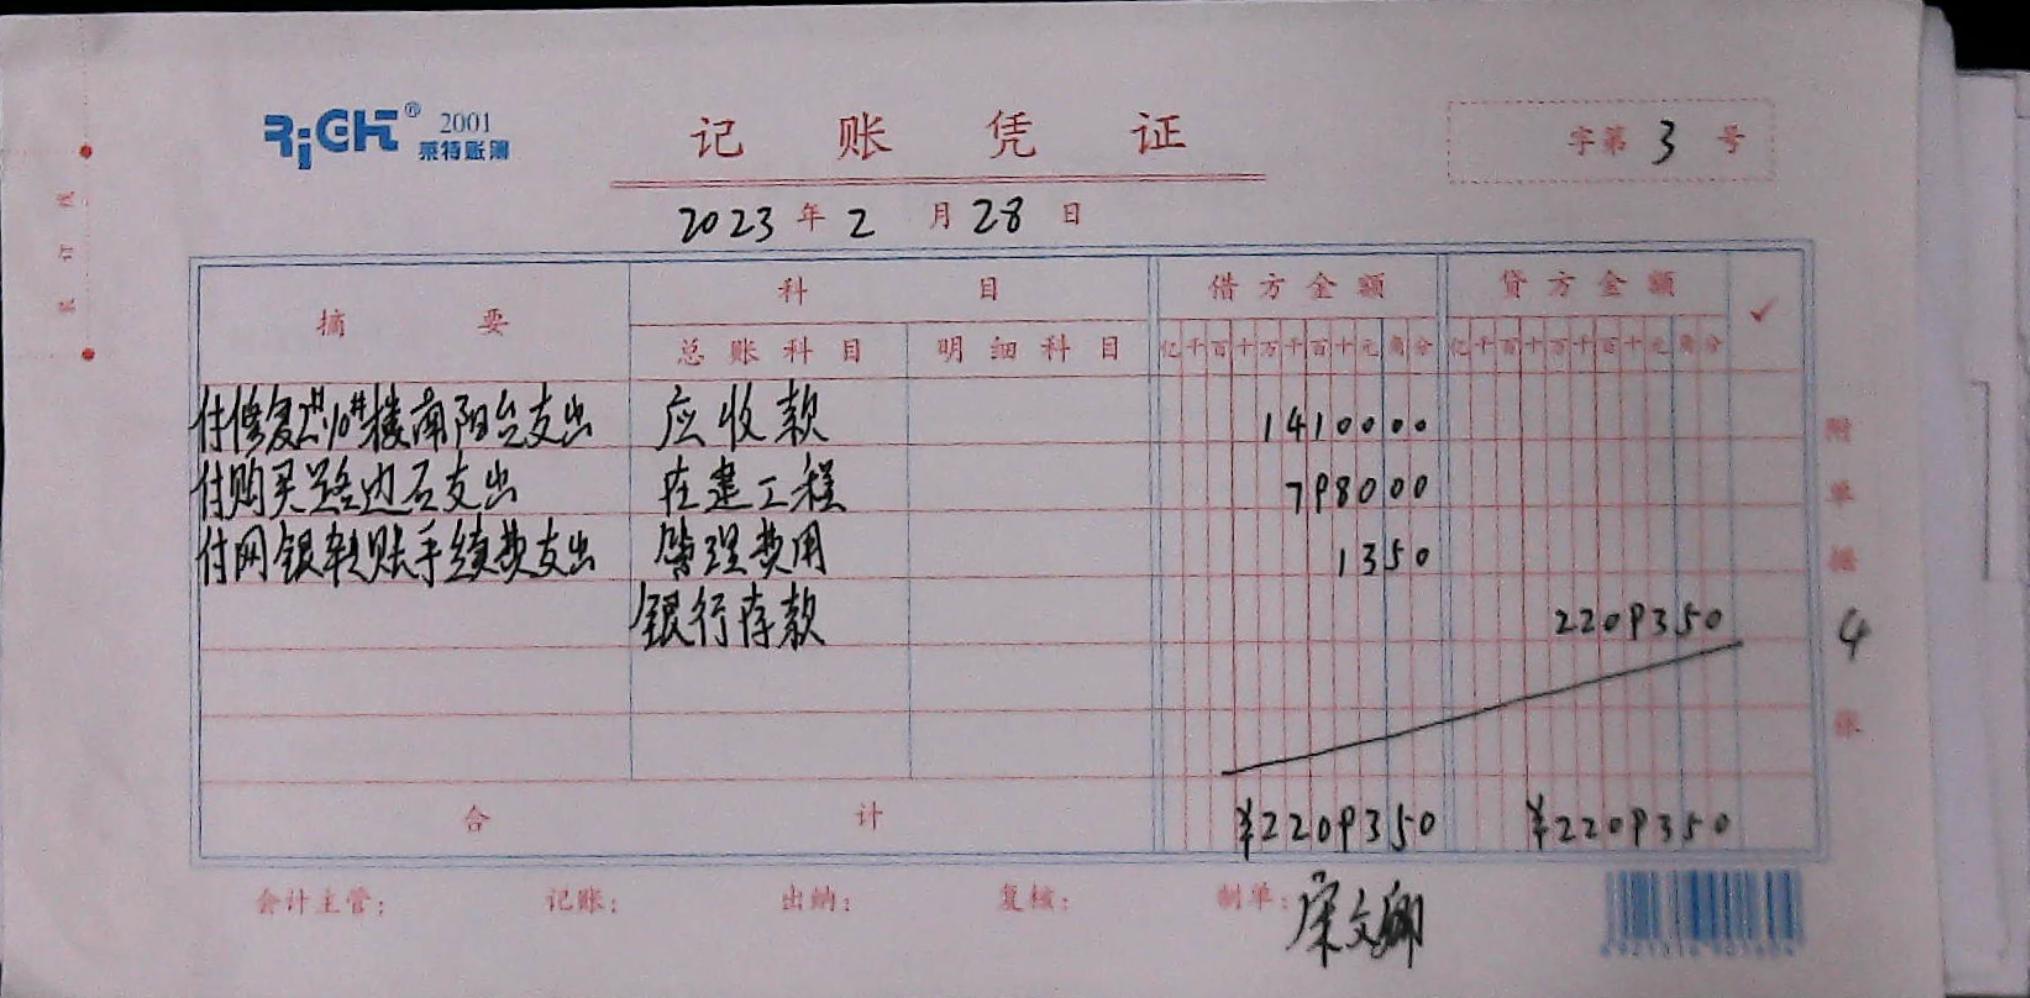 RiGHT® 2001
莱特账簿
记账凭证
字第 3 号
2023 年 2 月 28 日
摘要 科目 借方金额 贷方金额 ✓
总账科目 明细科目 亿千百十万千百十元角分 亿千百十万千百十元角分
付修复2#、10#楼南阳台支出 应收款 1410000
付购买路边石支出 在建工程 798000
付网银转账手续费支出 管理费用 1350
银行存款 2209350
合计 ¥2209350 ¥2209350
附单据 4 张
会计主管: 记账: 出纳: 复核: 制单: 宋文卿
装订线